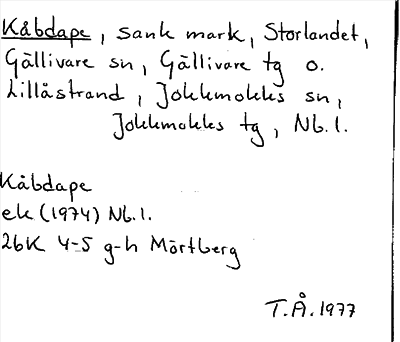 Kåbdape, sank mark, Storlandet,
Gällivare sn, Gällivare tg o.
Lillåstrand, Jokkmokks sn,
Jokkmokks tg, Nb.l.
Kåbdape
ek (1974) Nb.l.
26K 4-5 g-h Mörtberg
T.Å. 1977